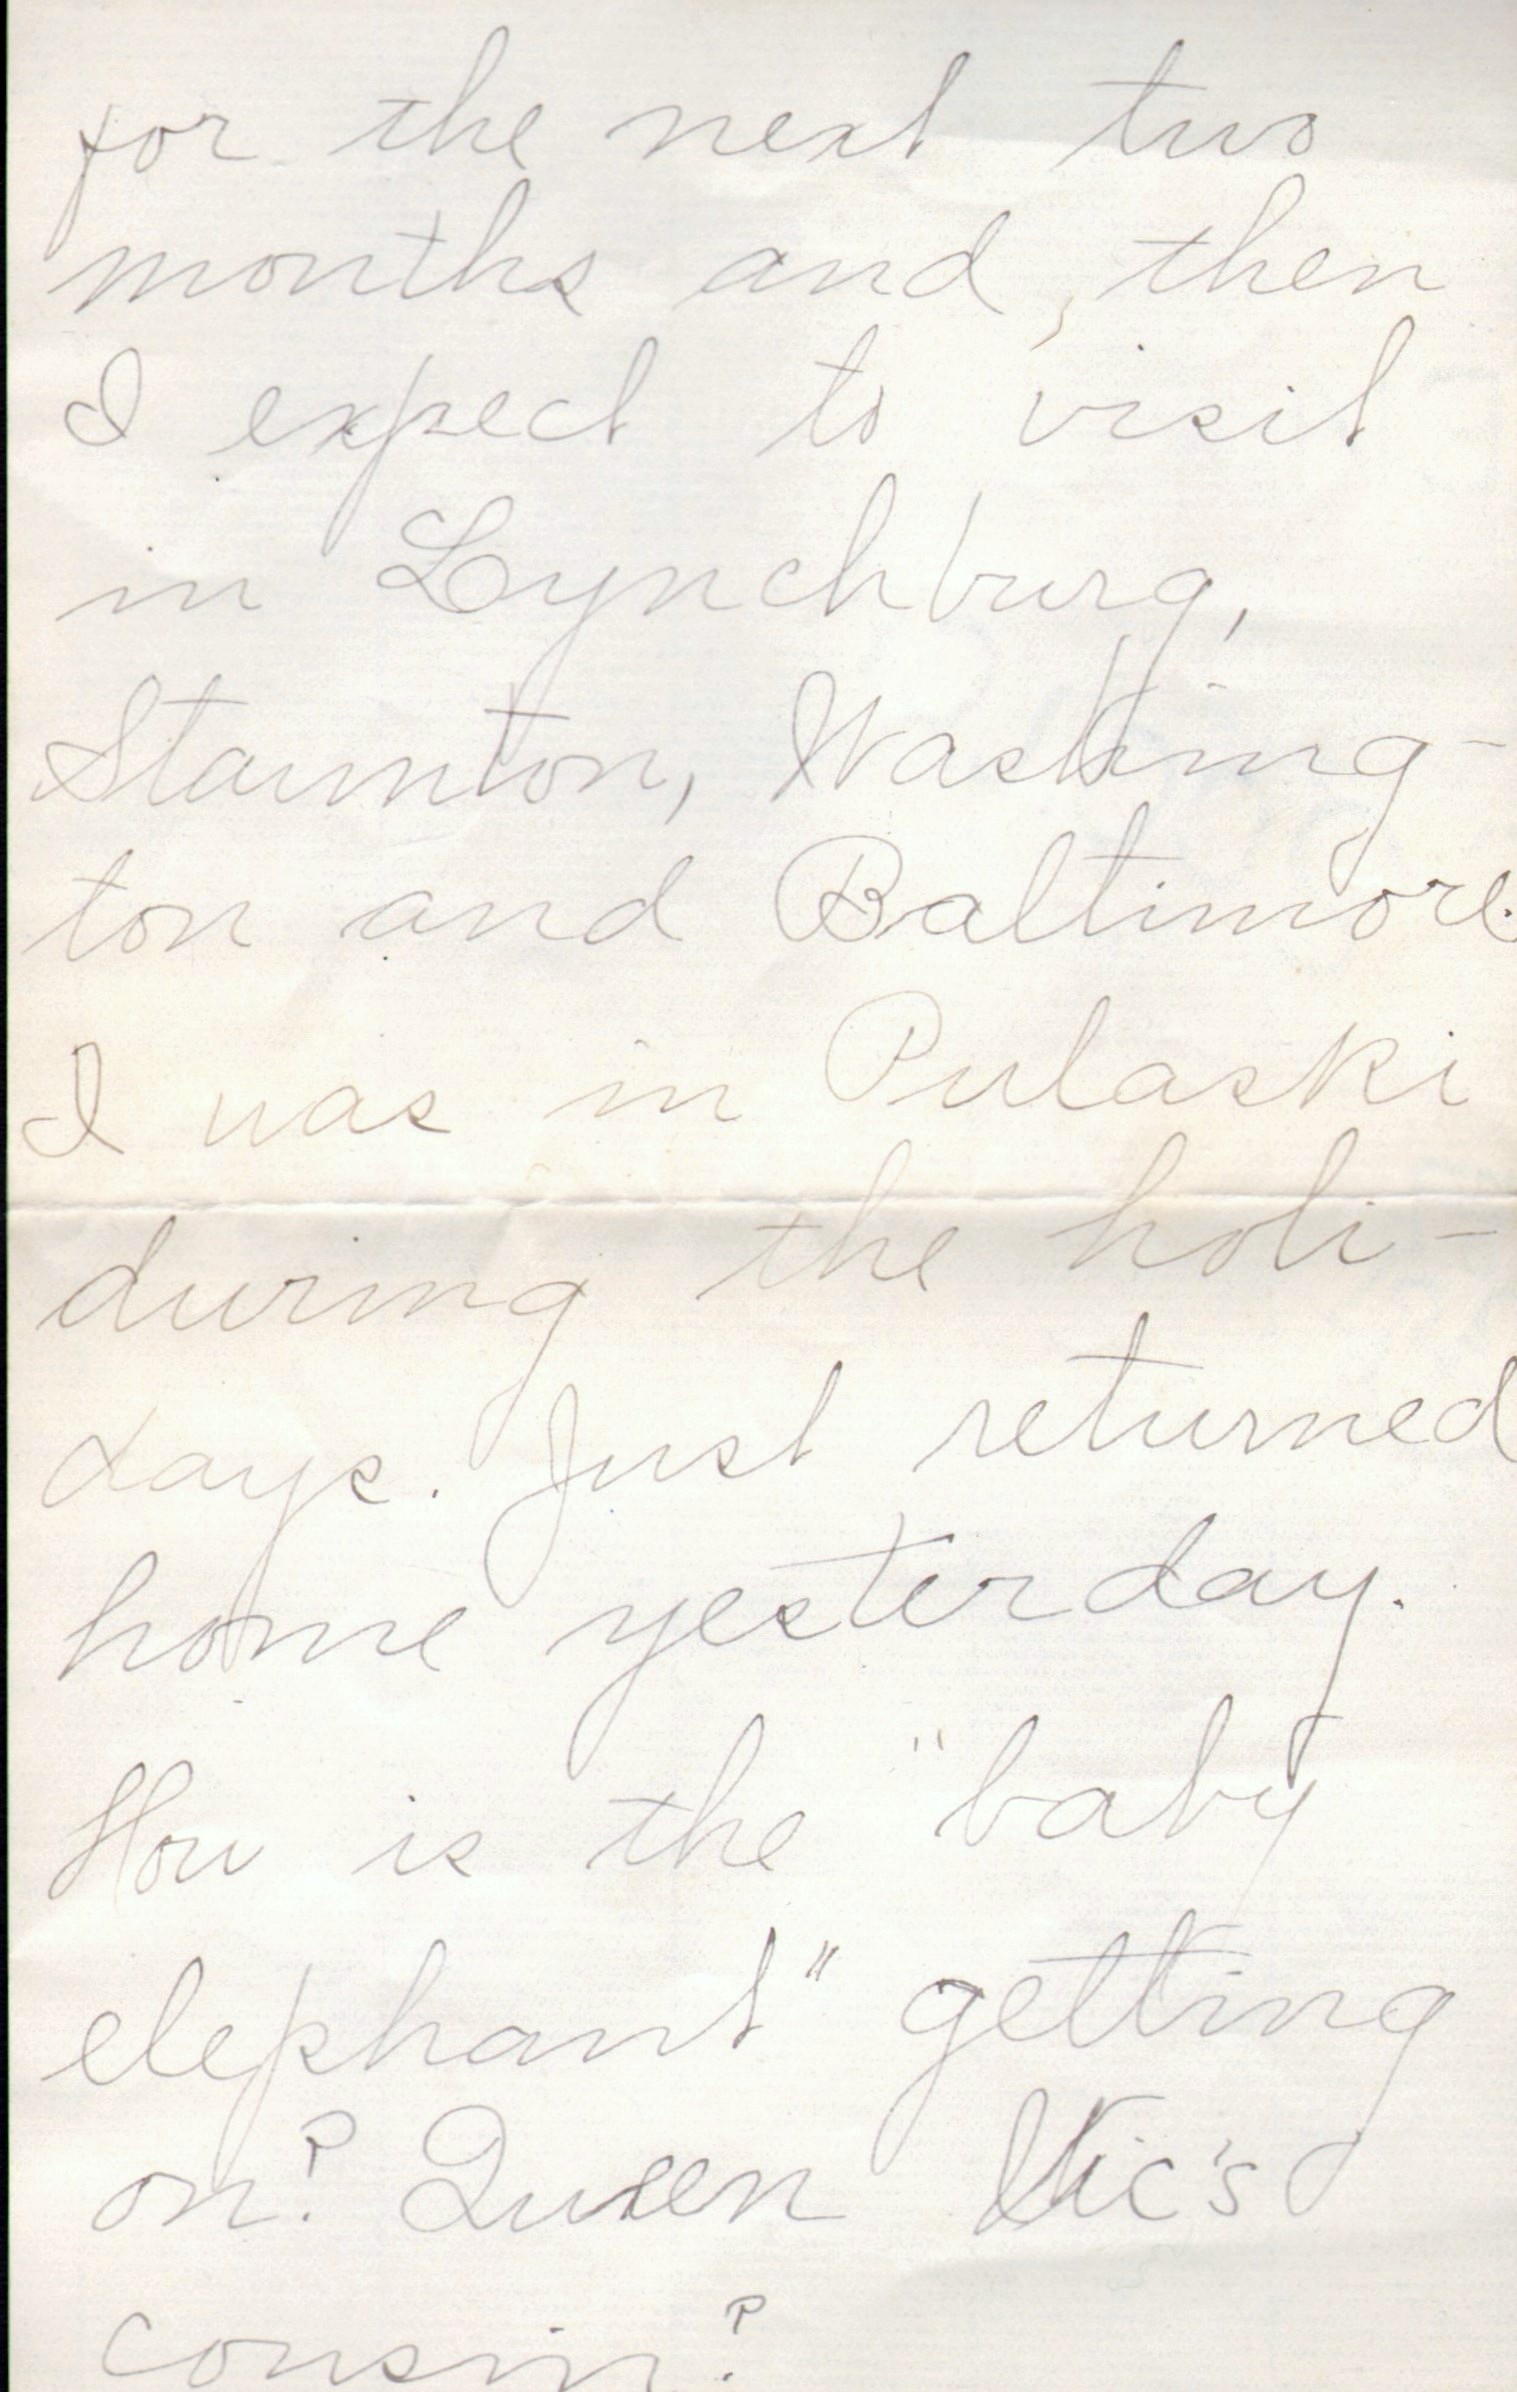 for the next two
months and, then
I expect to visit
in Lynchburg,
Staunton, Washing-
ton and Baltimore.
I was in Pulaski
during the holi-
days. Just returned
home yesterday.
How is the "baby
elephant" getting
on? Queen Vic's
cousin?